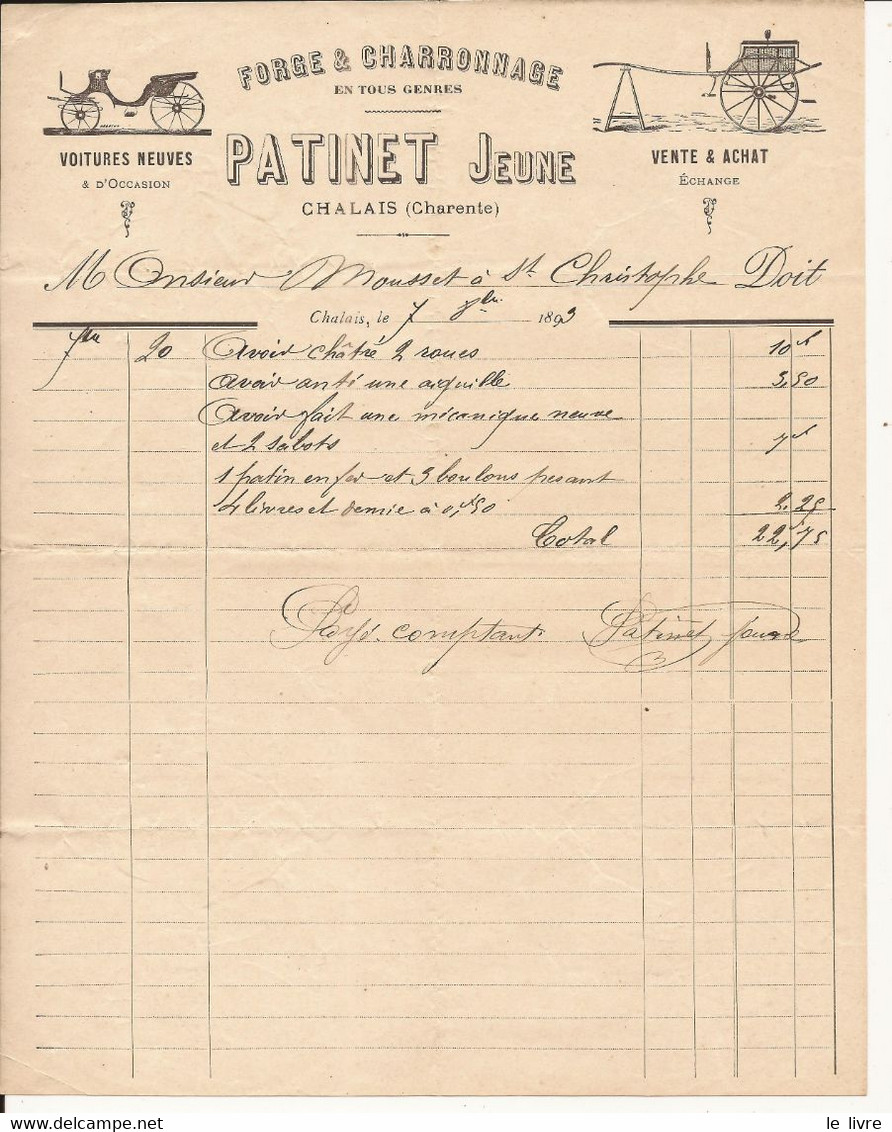 FORGE & CHARRONNAGE
EN TOUS GENRES
PATINET JEUNE
CHALAIS (Charente)
VOITURES NEUVES
& D'OCCASION
VENTE & ACHAT
ÉCHANGE
Monsieur Mousset à St Christophe Doit
Chalais, le 7 8bre 1893
7bre 20 Avoir châtré 2 roues 10f
avoir anté une aiguille 3,50
Avoir fait une mécanique neuve
et 2 sabots 7f
1 patin en fer et 3 boulons pesant
4 livres et demie à 0f,50 2.25
Total 22f,75
Payé comptant Patinet jeune
le livre